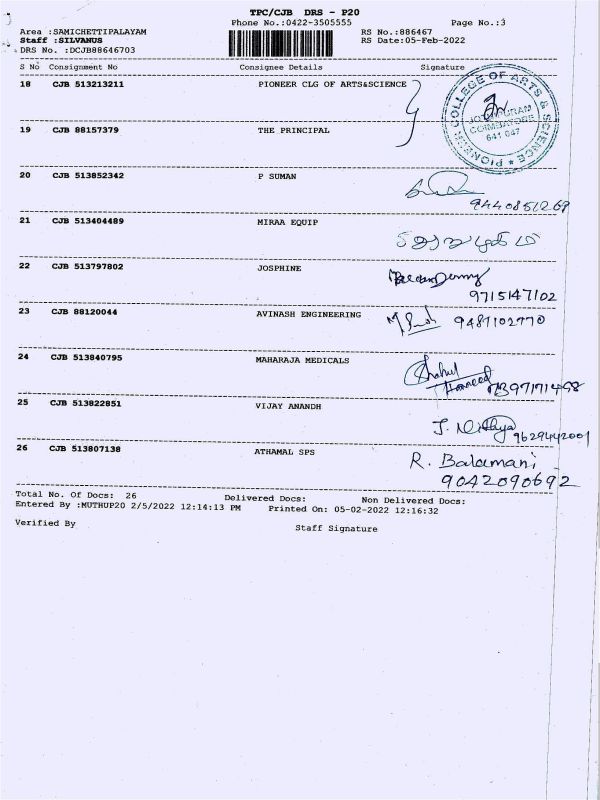 TPC/CJB DRS - P20
Phone No.:0422-3505555 Page No.:3
Area :SAMICHETTIPALAYAM RS No.:886467
Staff :SILVANUS RS Date:05-Feb-2022
DRS No. :DCJB88646703
S No Consignment No Consignee Details Signature
18 CJB 513213211 PIONEER CLG OF ARTS&SCIENCE
PIONEER COLLEGE OF ARTS & SCIENCE
COIMBATORE
641 047
19 CJB 88157379 THE PRINCIPAL
20 CJB 513852342 P SUMAN
9440851269
21 CJB 513404489 MIRAA EQUIP
22 CJB 513797802 JOSPHINE
9715147102
23 CJB 88120044 AVINASH ENGINEERING 9487102770
24 CJB 513840795 MAHARAJA MEDICALS Shahul
Hameed
25 CJB 513822851 VIJAY ANANDH J. Nithya 9629442001
26 CJB 513807138 ATHAMAL SPS R. Balamani
9042090692
Total No. Of Docs: 26 Delivered Docs: Non Delivered Docs:
Entered By :MUTHUP20 2/5/2022 12:14:13 PM Printed On: 05-02-2022 12:16:32
Verified By Staff Signature